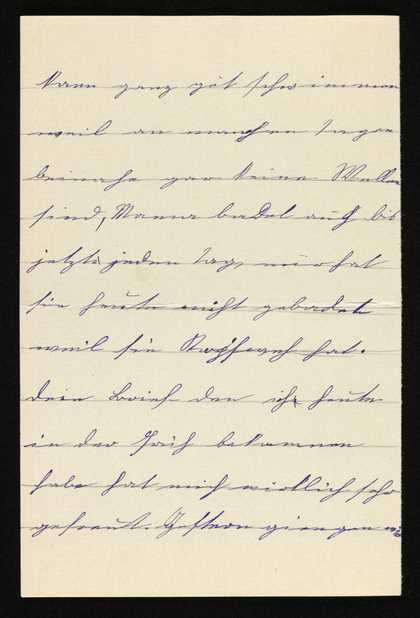 kann ganz gut schwimmen
weil an manchen Tagen
beinahe gar keine Wellen
sind, Mama badet auch bis
jetzt jeden Tag, nur hat
sie heute nicht gebadet
weil sie Kopfweh hat.
Dein Brief den ich heute
in der Früh bekommen
habe hat mich wirklich sehr
gefreut. Gestern giengen wir